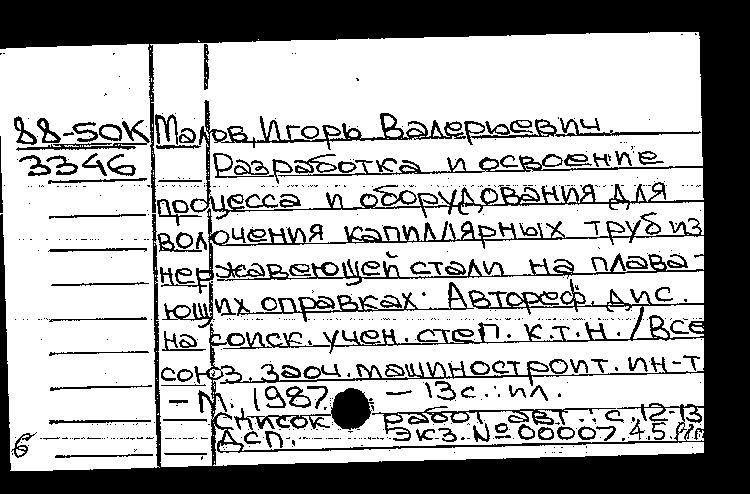 88-50К Малов, Игорь Валерьевич.
3346 Разработка и освоение
процесса и оборудования для
волочения капиллярных труб из
нержавеющей стали на плава-
ющих оправках. Автореф. дис.
на соиск. учен. степ. к.т.н. / Все
союз. заоч. машиностроит. ин-т
- М., 1987 - 13с.: ил.
Список работ авт.: с. 12-13
Дсп. Экз. № 00007. 4.5.
б